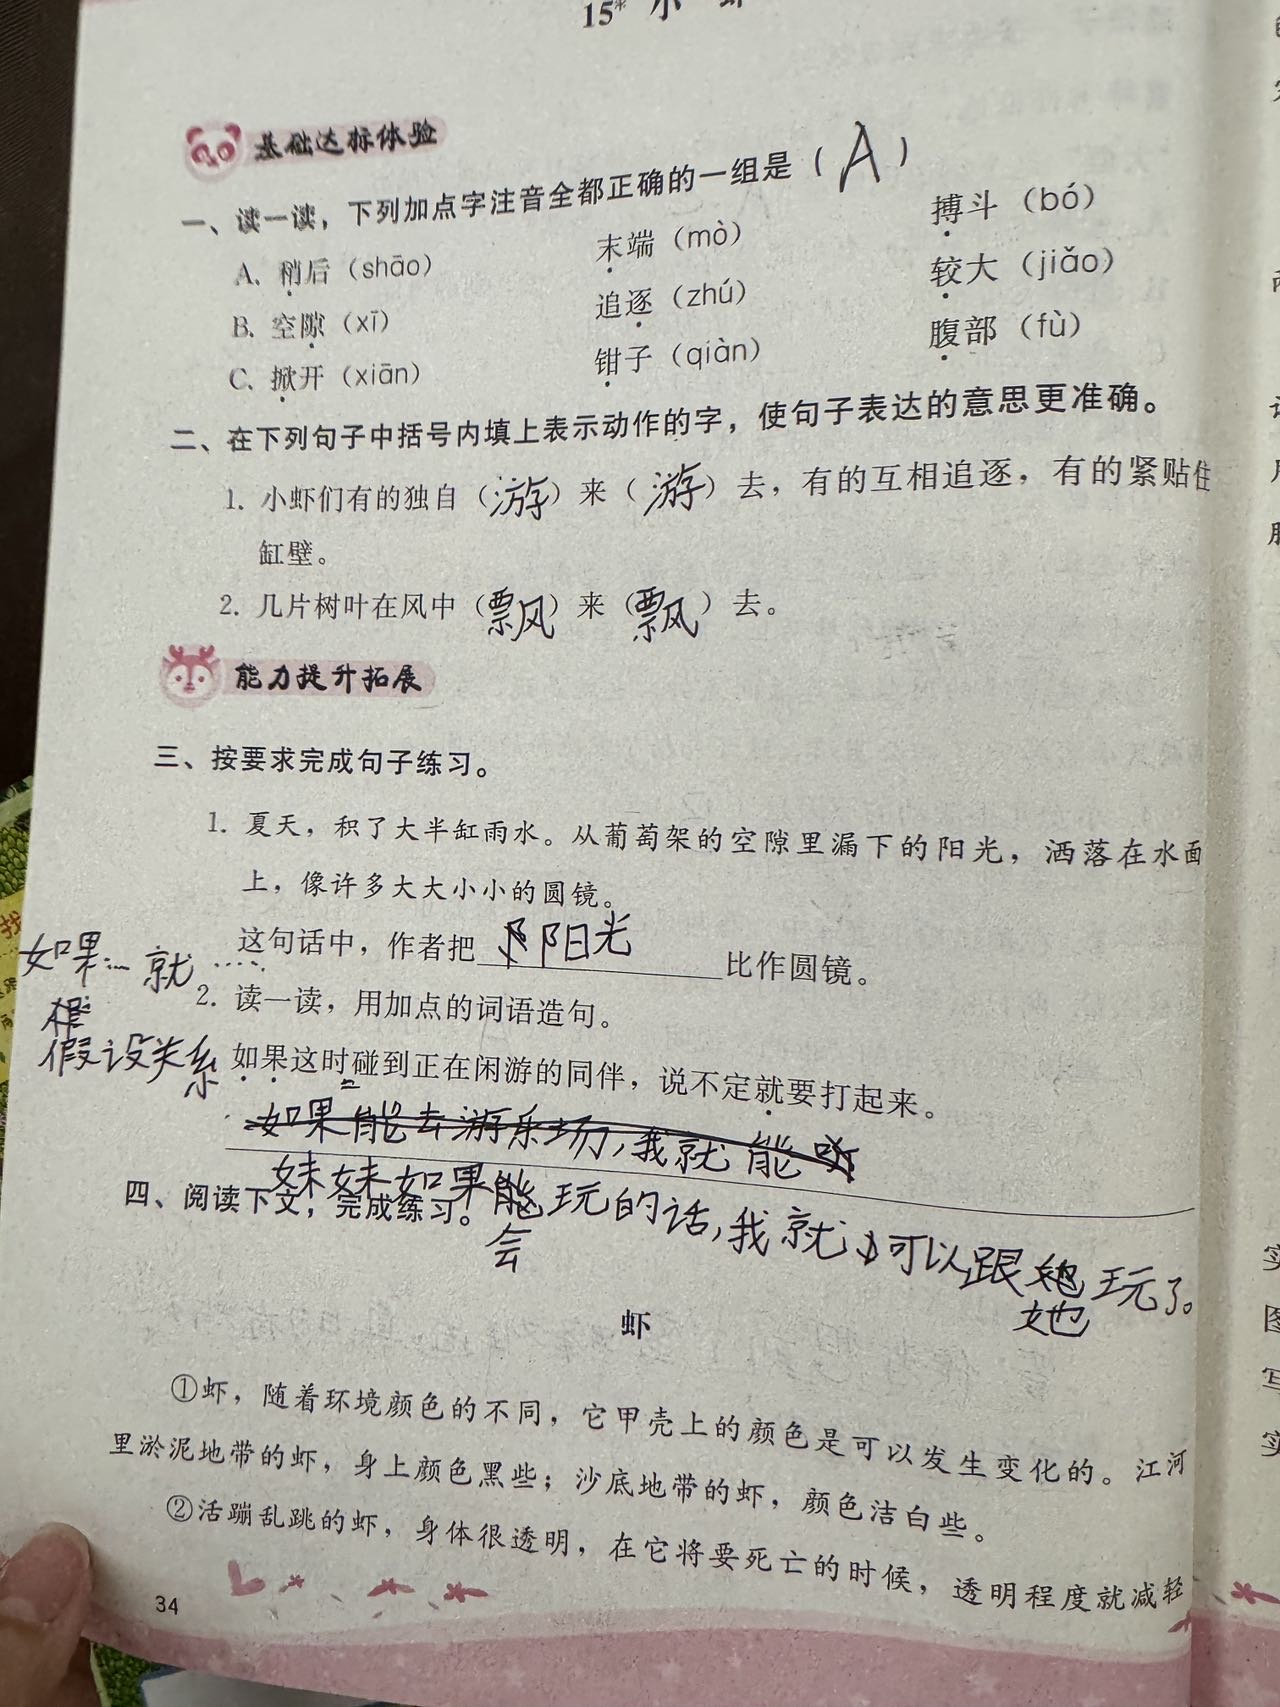 15* 小 虾
基础达标体验
一、读一读，下列加点字注音全都正确的一组是（A）
A. 稍后（shāo） 末端（mò） 搏斗（bó）
B. 空隙（xī） 追逐（zhú） 较大（jiǎo）
C. 掀开（xiān） 钳子（qiàn） 腹部（fù）
二、在下列句子中括号内填上表示动作的字，使句子表达的意思更准确。
1. 小虾们有的独自（游）来（游）去，有的互相追逐，有的紧贴住
缸壁。
2. 几片树叶在风中（飘）来（飘）去。
能力提升拓展
三、按要求完成句子练习。
1. 夏天，积了大半缸雨水。从葡萄架的空隙里漏下的阳光，洒落在水面
上，像许多大大小小的圆镜。
这句话中，作者把 阳光 比作圆镜。
如果…就……
2. 读一读，用加点的词语造句。
假设关系
如果这时碰到正在闲游的同伴，说不定就要打起来。
如果能去游乐场，我就能
妹妹如果能玩的话，我就可以跟她玩了。
会
她
四、阅读下文，完成练习。
虾
①虾，随着环境颜色的不同，它甲壳上的颜色是可以发生变化的。江河
里淤泥地带的虾，身上颜色黑些；沙底地带的虾，颜色洁白些。
②活蹦乱跳的虾，身体很透明，在它将要死亡的时候，透明程度就减轻
34